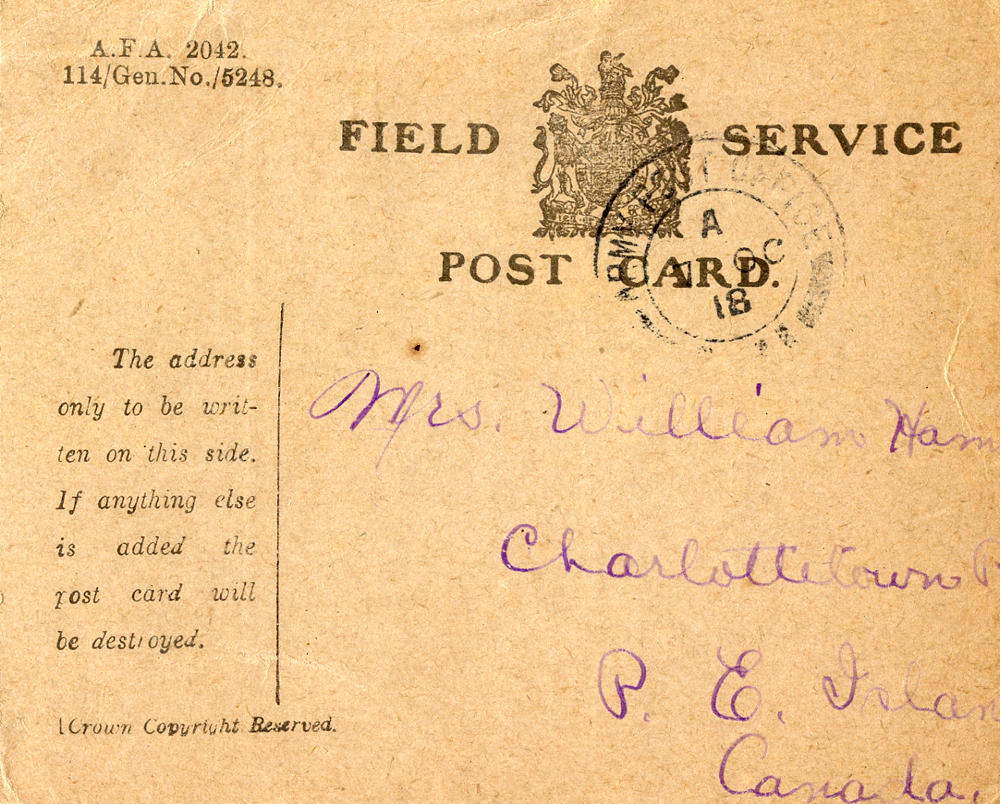 A.F.A. 2042.
114/Gen.No./5248.
FIELD SERVICE
POST CARD.
ARMY POST OFFICE
A
OC
18
The address
only to be writ-
ten on this side.
If anything else
is added the
post card will
be destroyed.
(Crown Copyright Reserved.
Mrs. William Ham
Charlottetown
P. E. Islan
Canada.